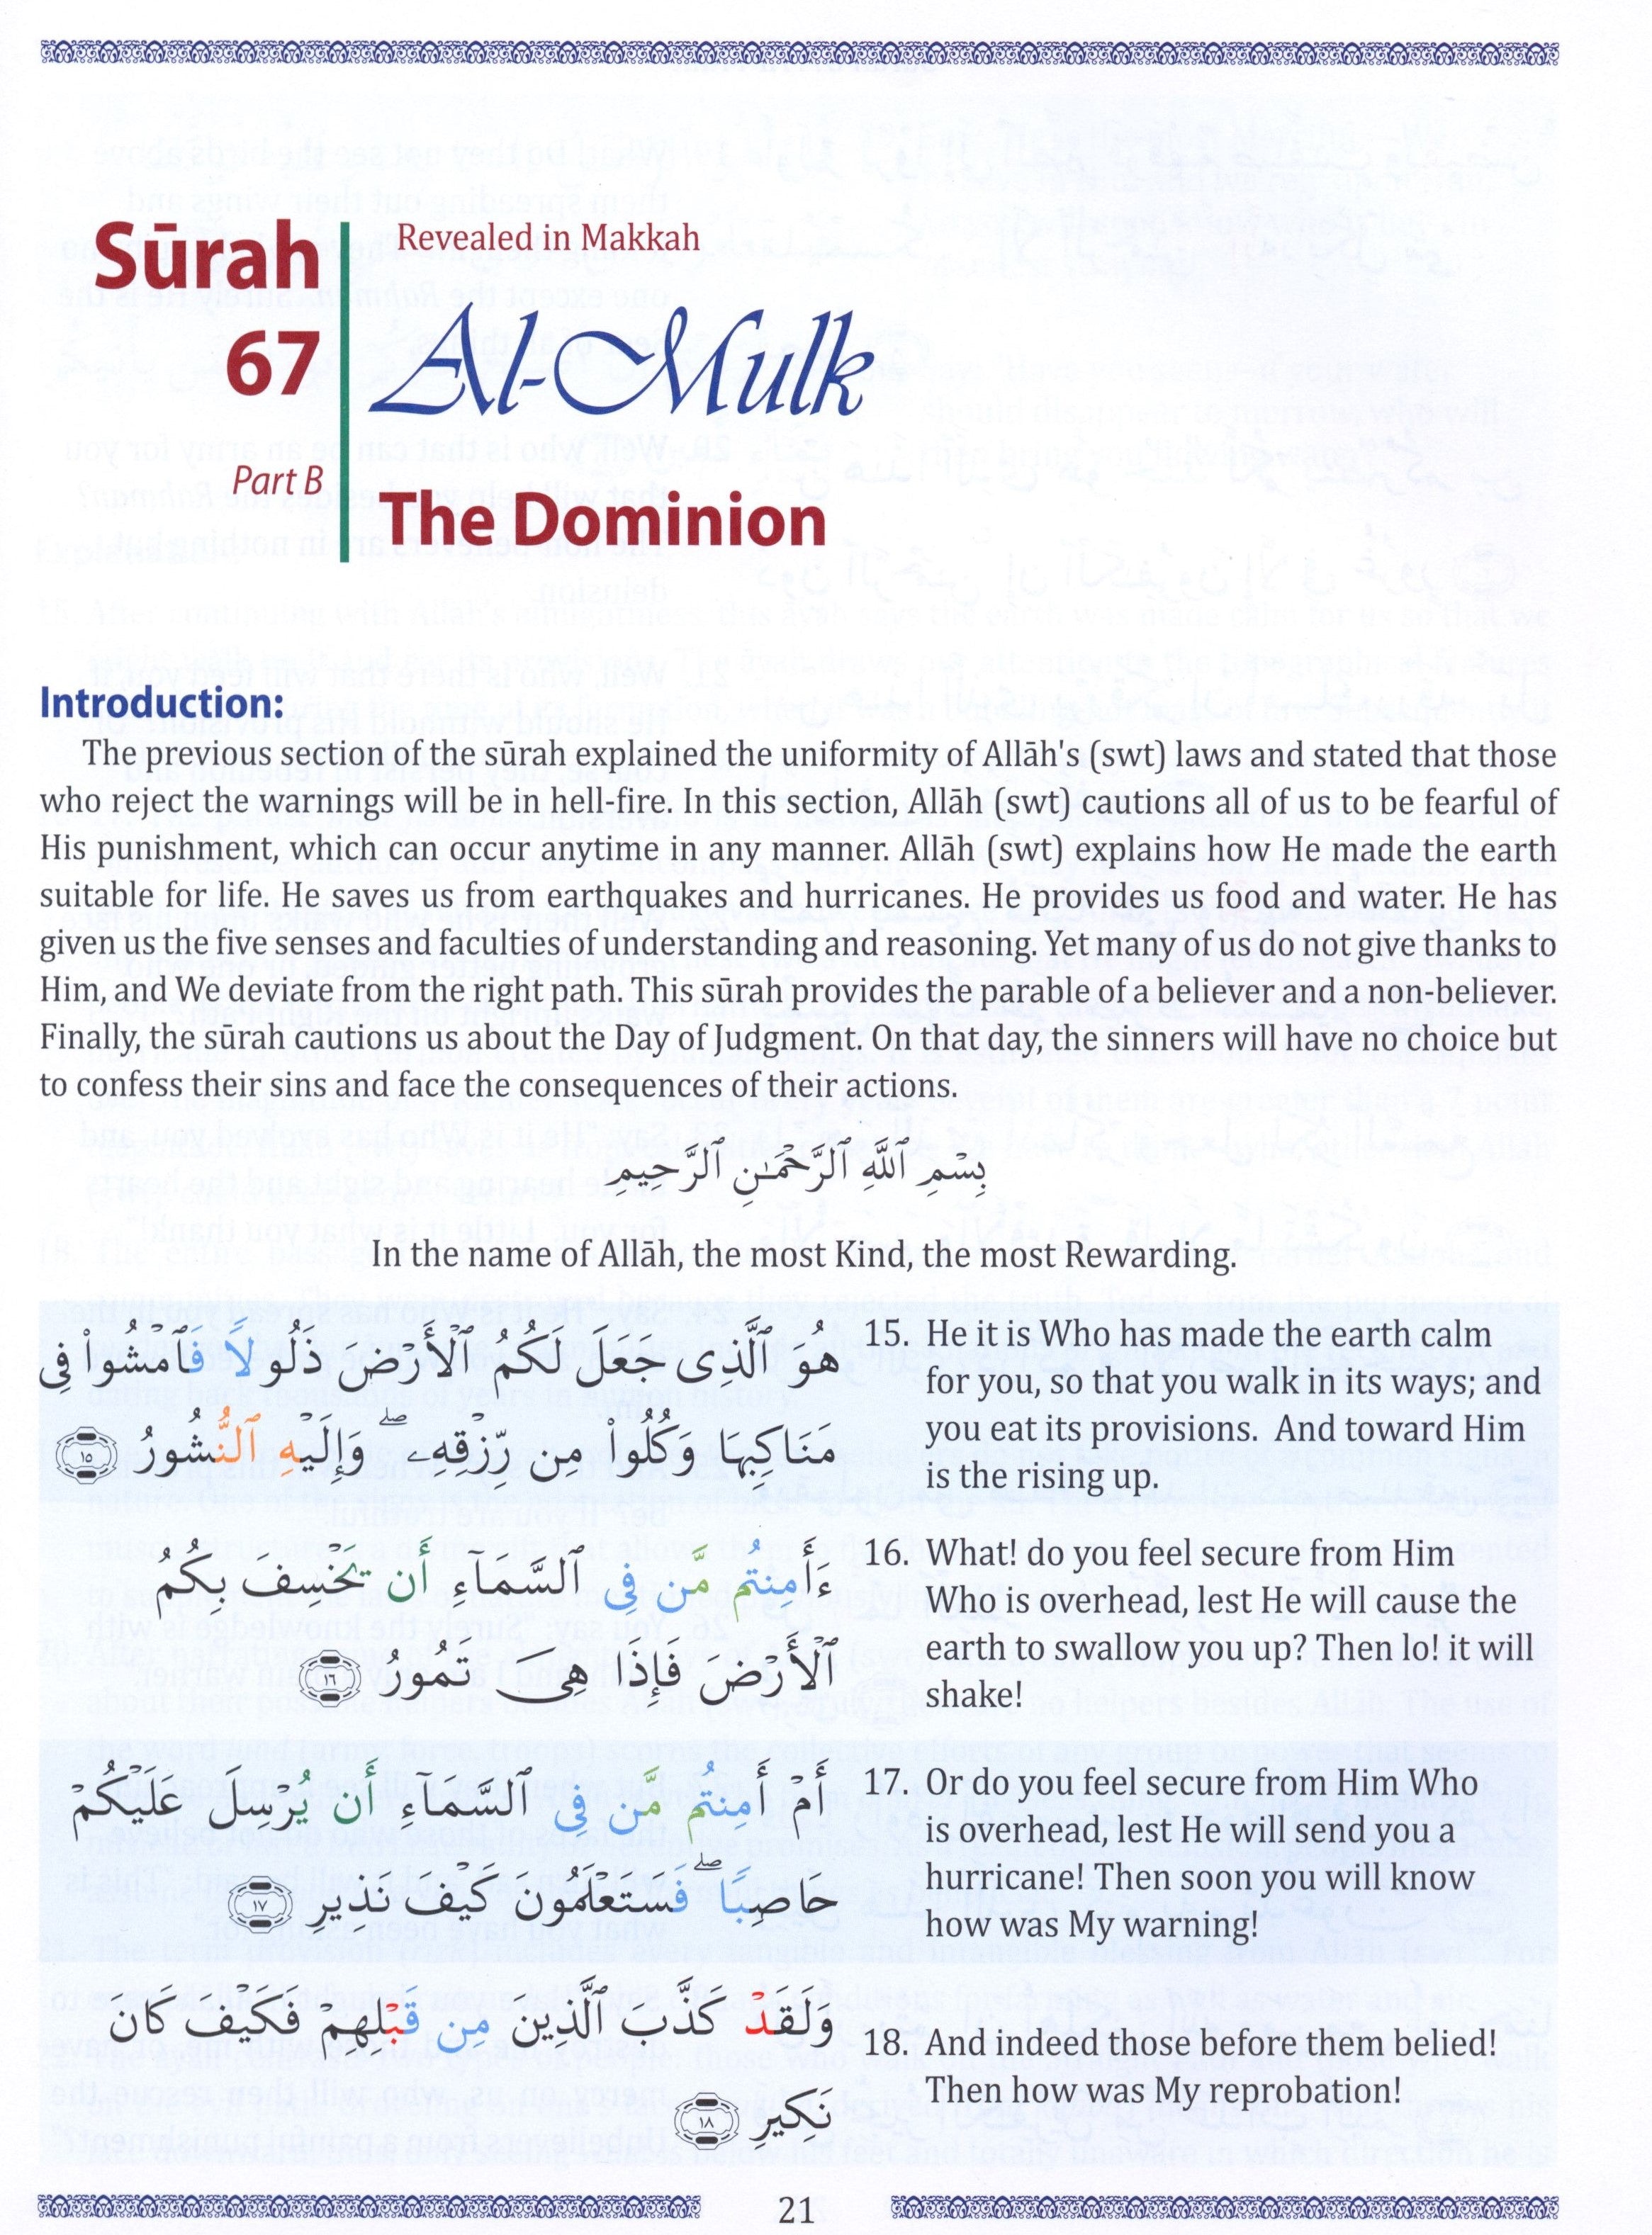 Sūrah
67
Part B
Revealed in Makkah
Al-Mulk
The Dominion
Introduction:
The previous section of the sūrah explained the uniformity of Allāh's (swt) laws and stated that those
who reject the warnings will be in hell-fire. In this section, Allāh (swt) cautions all of us to be fearful of
His punishment, which can occur anytime in any manner. Allāh (swt) explains how He made the earth
suitable for life. He saves us from earthquakes and hurricanes. He provides us food and water. He has
given us the five senses and faculties of understanding and reasoning. Yet many of us do not give thanks to
Him, and We deviate from the right path. This sūrah provides the parable of a believer and a non-believer.
Finally, the sūrah cautions us about the Day of Judgment. On that day, the sinners will have no choice but
to confess their sins and face the consequences of their actions.
بِسْمِ ٱللَّهِ ٱلرَّحْمَـٰنِ ٱلرَّحِيمِ
In the name of Allāh, the most Kind, the most Rewarding.
هُوَ ٱلَّذِى جَعَلَ لَكُمُ ٱلْأَرْضَ ذَلُولًا فَٱمْشُوا۟ فِى
مَنَاكِبِهَا وَكُلُوا۟ مِن رِّزْقِهِۦ ۖ وَإِلَيْهِ ٱلنُّشُورُ ١٥
15. He it is Who has made the earth calm
for you, so that you walk in its ways; and
you eat its provisions. And toward Him
is the rising up.
ءَأَمِنتُم مَّن فِى ٱلسَّمَآءِ أَن يَخْسِفَ بِكُمُ
ٱلْأَرْضَ فَإِذَا هِىَ تَمُورُ ١٦
16. What! do you feel secure from Him
Who is overhead, lest He will cause the
earth to swallow you up? Then lo! it will
shake!
أَمْ أَمِنتُم مَّن فِى ٱلسَّمَآءِ أَن يُرْسِلَ عَلَيْكُمْ
حَاصِبًا ۖ فَسَتَعْلَمُونَ كَيْفَ نَذِيرِ ١٧
17. Or do you feel secure from Him Who
is overhead, lest He will send you a
hurricane! Then soon you will know
how was My warning!
وَلَقَدْ كَذَّبَ ٱلَّذِينَ مِن قَبْلِهِمْ فَكَيْفَ كَانَ
نَكِيرِ ١٨
18. And indeed those before them belied!
Then how was My reprobation!
21